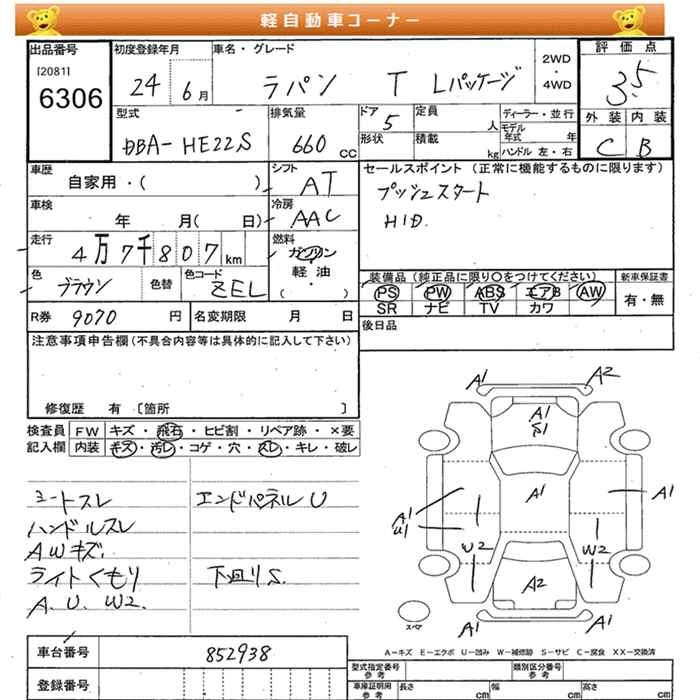 軽自動車コーナー
出品番号 初度登録年月 車名・グレード 2WD・4WD 評価点
[2081] 6306
24年 6月 ラパン T Lパッケージ 3.5
型式 排気量 ドア 定員 人 ディーラー・並行 外装 内装
DBA-HE22S 660cc 5 モデル年式 年
形状 積載 kg ハンドル 左・右 C B
車歴 シフト セールスポイント (正常に機能するものに限ります)
自家用・( ) AT プッシュスタート
車検 冷房 HID.
年 月( 日) AAC
走行 4万7千807km 燃料 ガソリン 軽油 ・ ( )
色 ブラウン 色替 色コード ZEL
装備品 (純正品に限り○をつけてください) 新車保証書
PS PW ABS エアB AW 有・無
SR ナビ TV カワ
R券 9070 円 名変期限 月 日 後日品
注意事項申告欄(不具合内容等は具体的に記入して下さい)
修復歴 有 [箇所 ]
検査員 FW キズ・飛石・ヒビ割・リペア跡・×要
記入欄 内装 キズ・汚レ・コゲ・穴・スレ・キレ・破レ
シートスレ エンドパネルU
ハンドルスレ
AWキズ.
ライトくもり 下廻りS.
A. U. W2.
A1 A2
A1
S1
A1 A1 A1
U1
W2 W2
A2
A1 A1
スペア
A-キズ E-エクボ U-凹み W-補修跡 S-サビ C-腐食 XX-交換済
車台番号 852938
登録番号
型式指定番号 参考 類別区分番号 参考
車庫証明用 参考 長さ cm 幅 cm 高さ cm